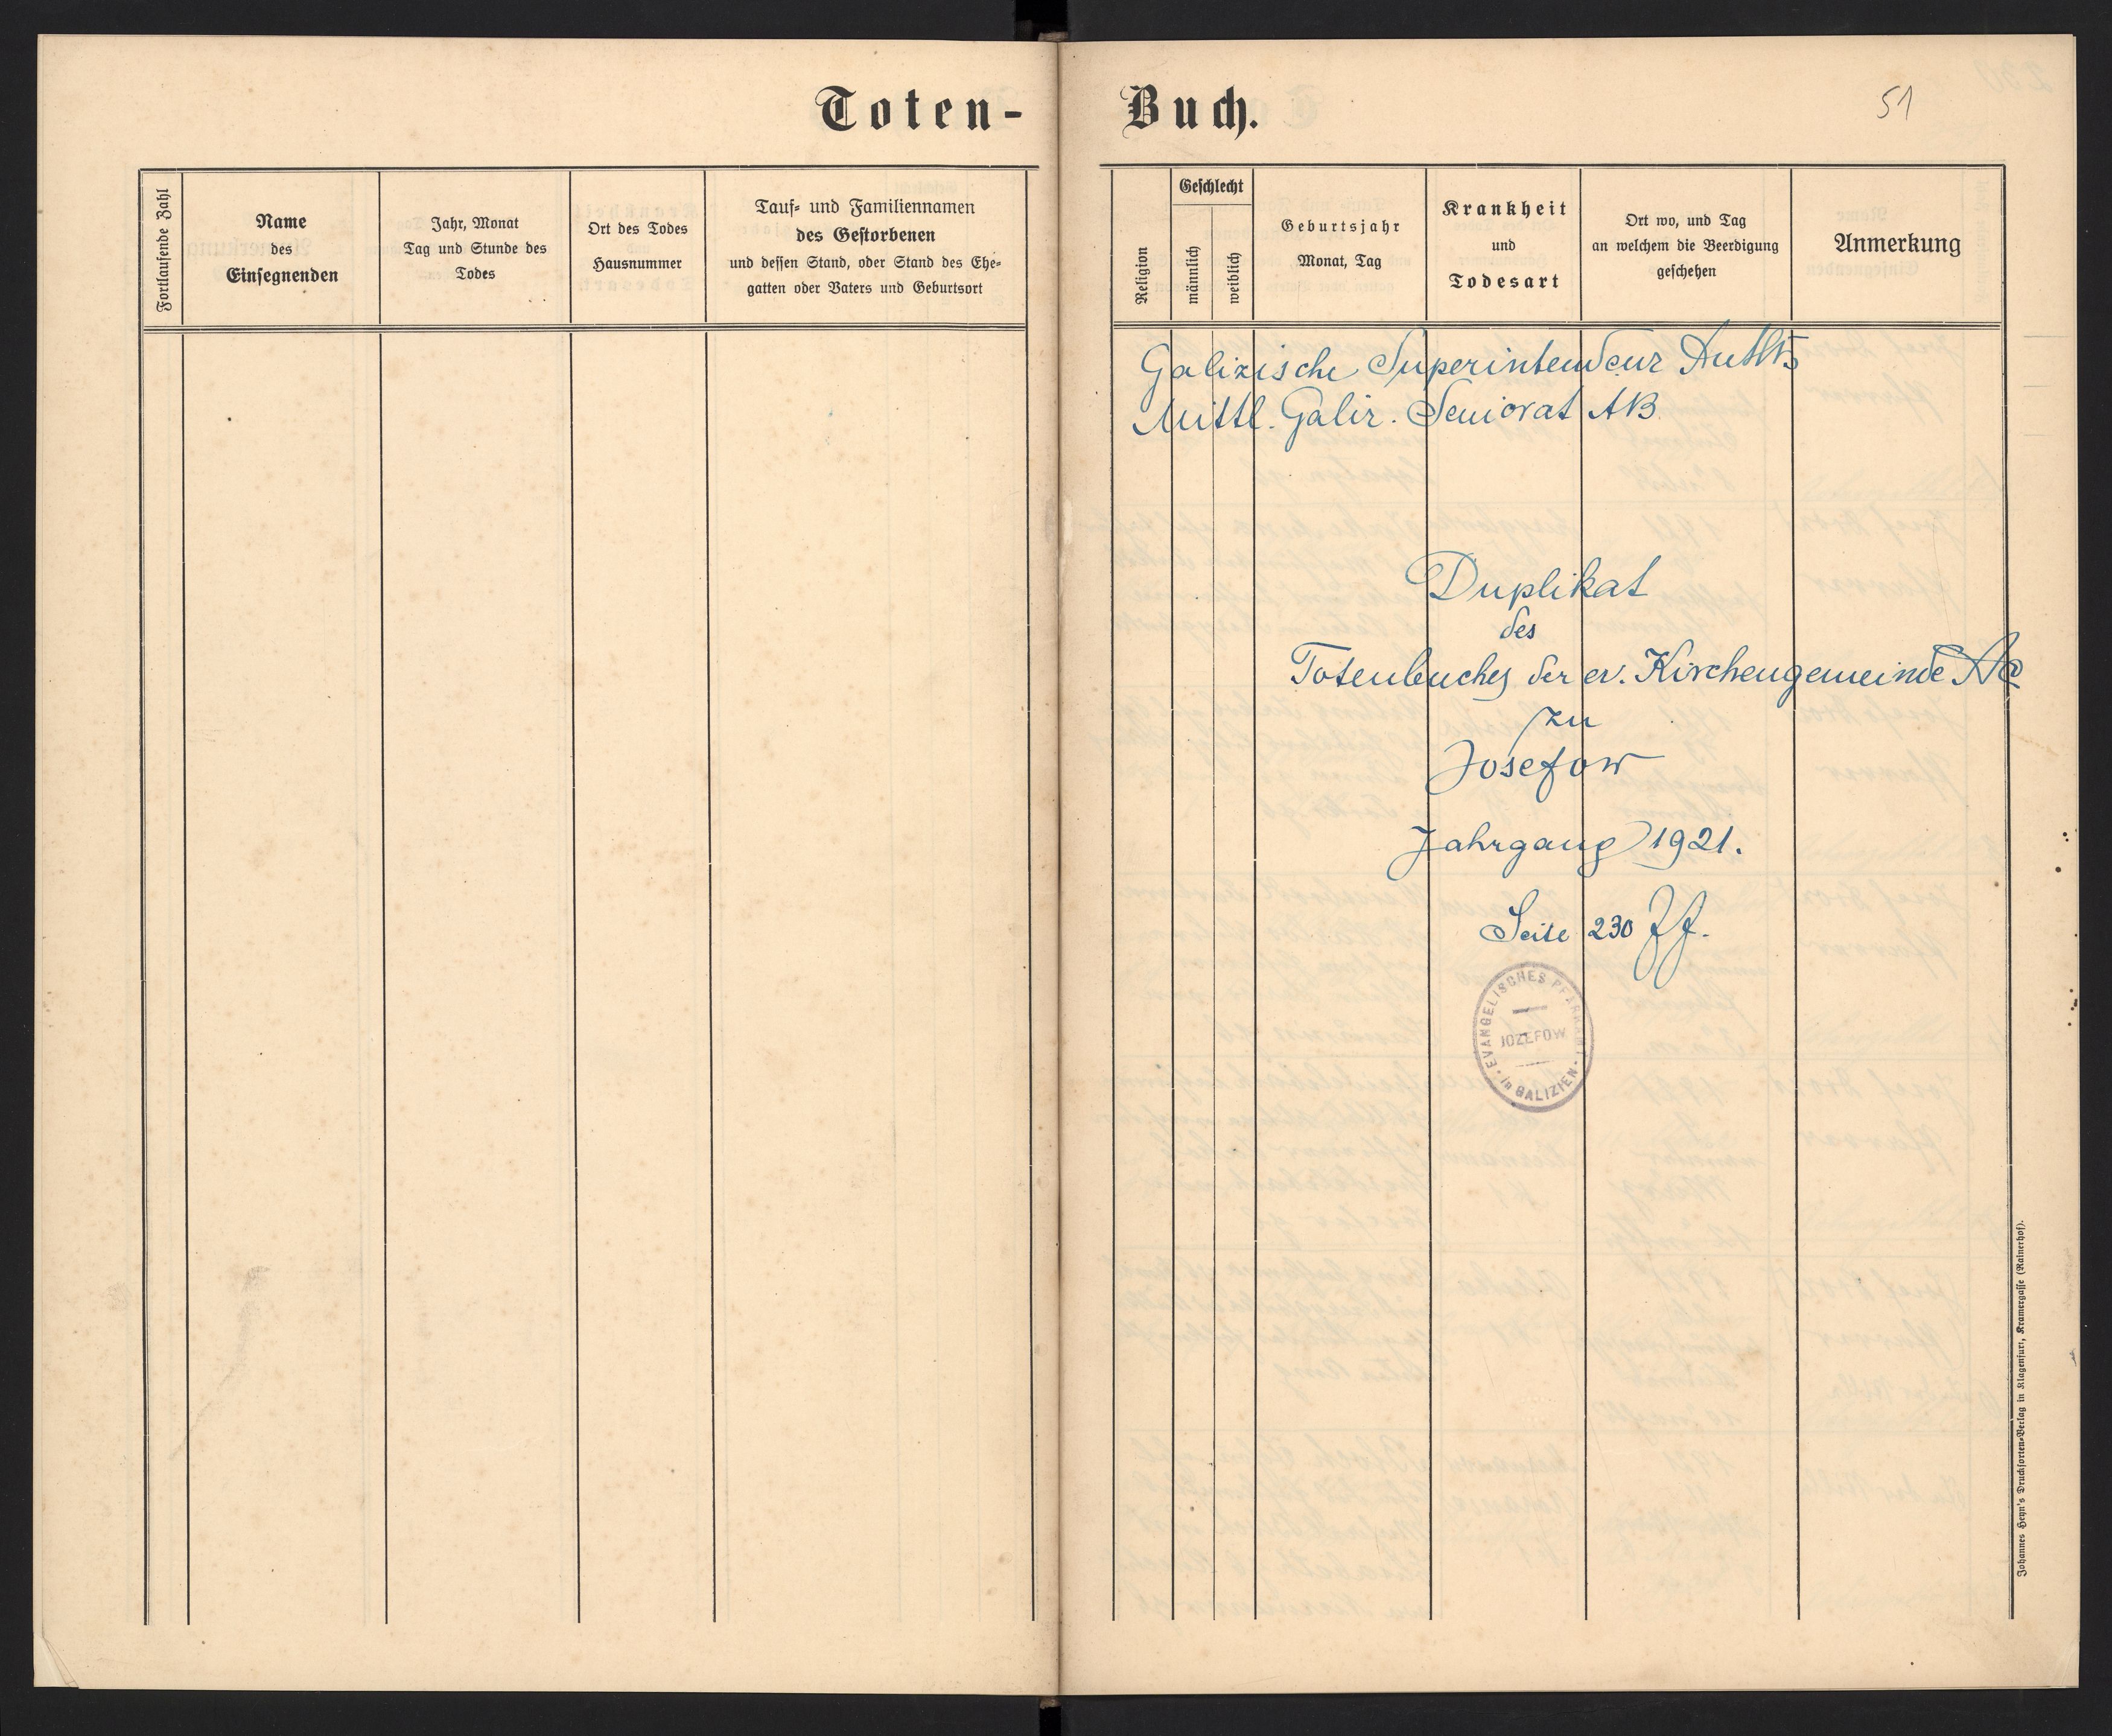 Toten-
Fortlaufende Zahl
Name
des
Einsegnenden
Jahr, Monat
Tag und Stunde des
Todes
Ort des Todes
Hausnummer
Tauf- und Familiennamen
des Gestorbenen
und dessen Stand, oder Stand des Ehe-
gatten oder Vaters und Geburtsort
Buch.
51
Religion
Geschlecht
männlich
weiblich
Geburtsjahr
Monat, Tag
Krankheit
und
Todesart
Ort wo, und Tag
an welchem die Beerdigung
geschehen
Anmerkung
Galizische Superintendenz
Mittl. Galiz. Seniorat AB
Duplikat
des
Totenbuches der ev. Kirchengemeinde
zu
Josefow
Jahrgang 1921.
Seite 230 ff.
EVANGELISCHES PFARRAMT
JOZEFOW
in GALIZIEN
Johannes Heyn's Drucksorten-Verlag in Klagenfurt, Kramergasse (Rainerhof).